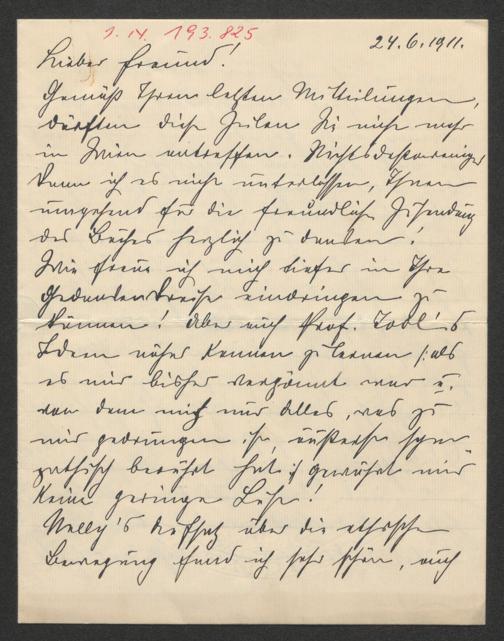 I.N. 193.825
24.6.1911.
Lieber Freund!
Gemäß Ihren letzten Mitteilungen,
dürften diese Zeilen Sie nicht mehr
in Wien antreffen. Nichtsdestoweniger
kann ich es nicht unterlassen, Ihnen
umgehend für die freundliche Zusendung
des Buches herzlich zu danken!
Wie freue ich mich tiefer in Ihre
Gedankenkreise eindringen zu
können! Aber auch Prof. Jodl's
Ideen näher kennen zu lernen /: als
es mir bisher vergönnt war u.
von dem mich nur alles, was zu
mir gedrungen ist, äußerst sym-
pathisch berührt hat :/ gewährt mir
keine geringe
Nelly's Aufsatz über die ethische
Bewegung fand ich sehr schön, auch